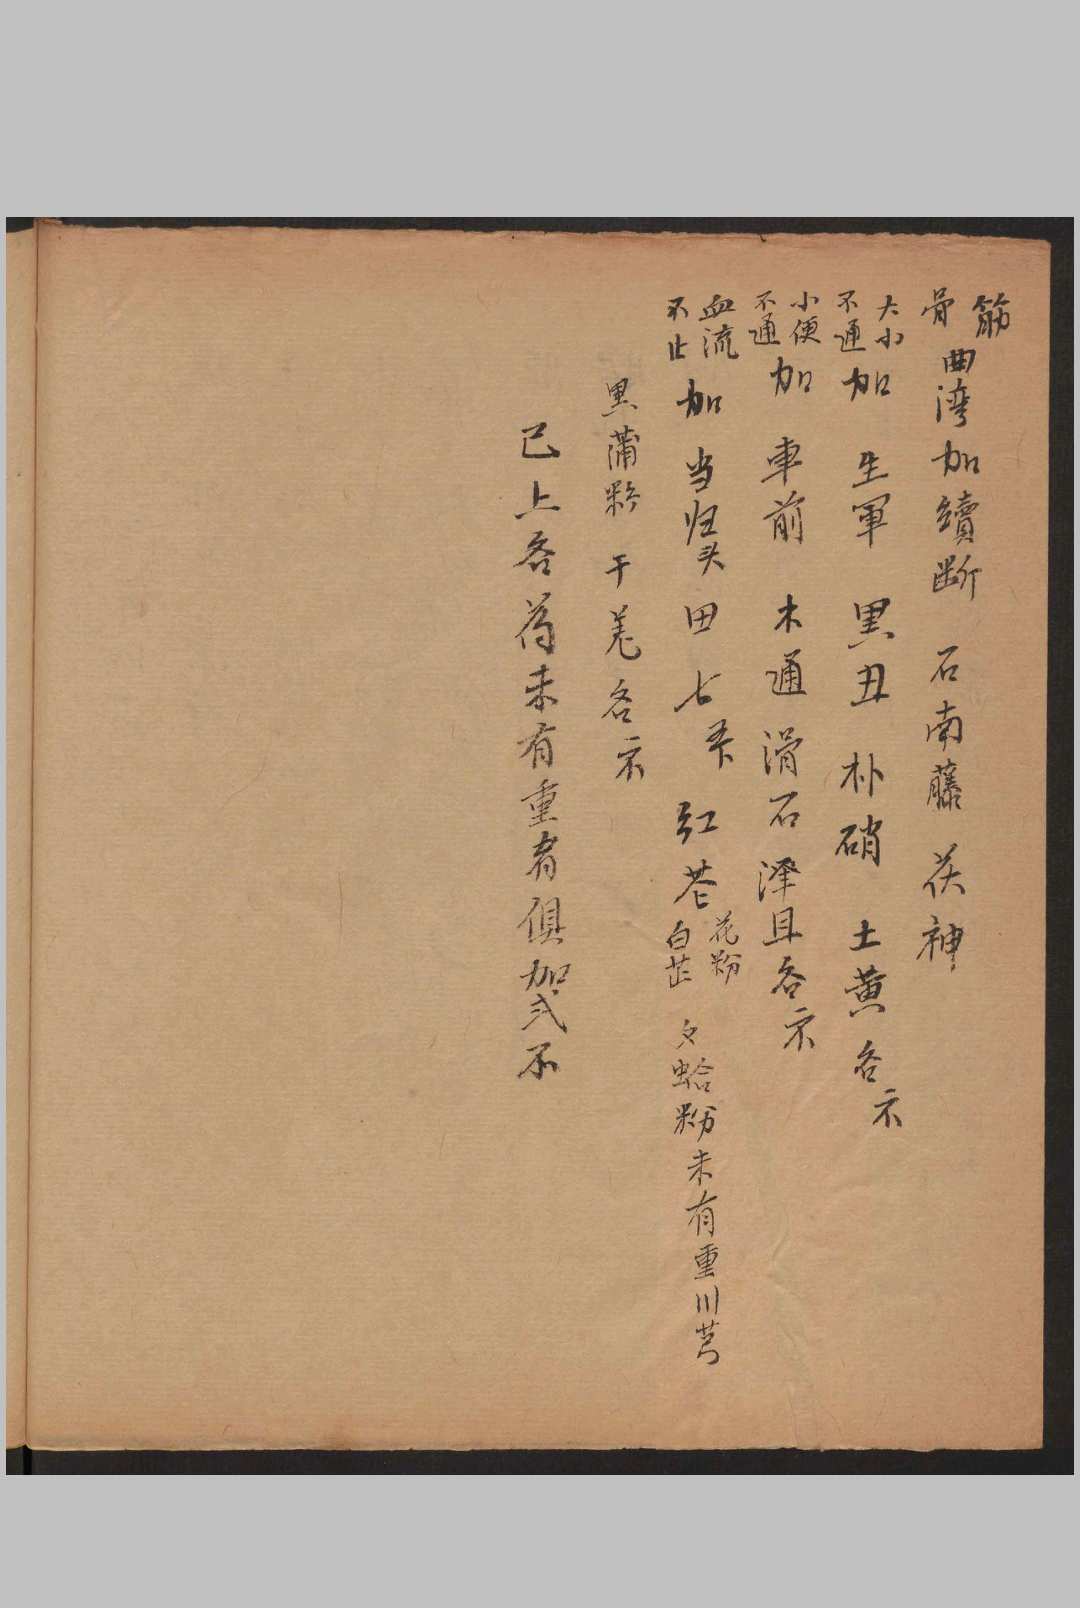 筋骨曲湾加續断 石南藤 茯神
大小不通加 生軍 黑丑 朴硝 土黄各
小便不通加 車前 木通 滑石 泽且各
血流不止加 当归头 田七 红花 花粉 白芷 蛤粉未有重川芎
黑蒲粉 干姜各
已上各药未有重者俱加弍